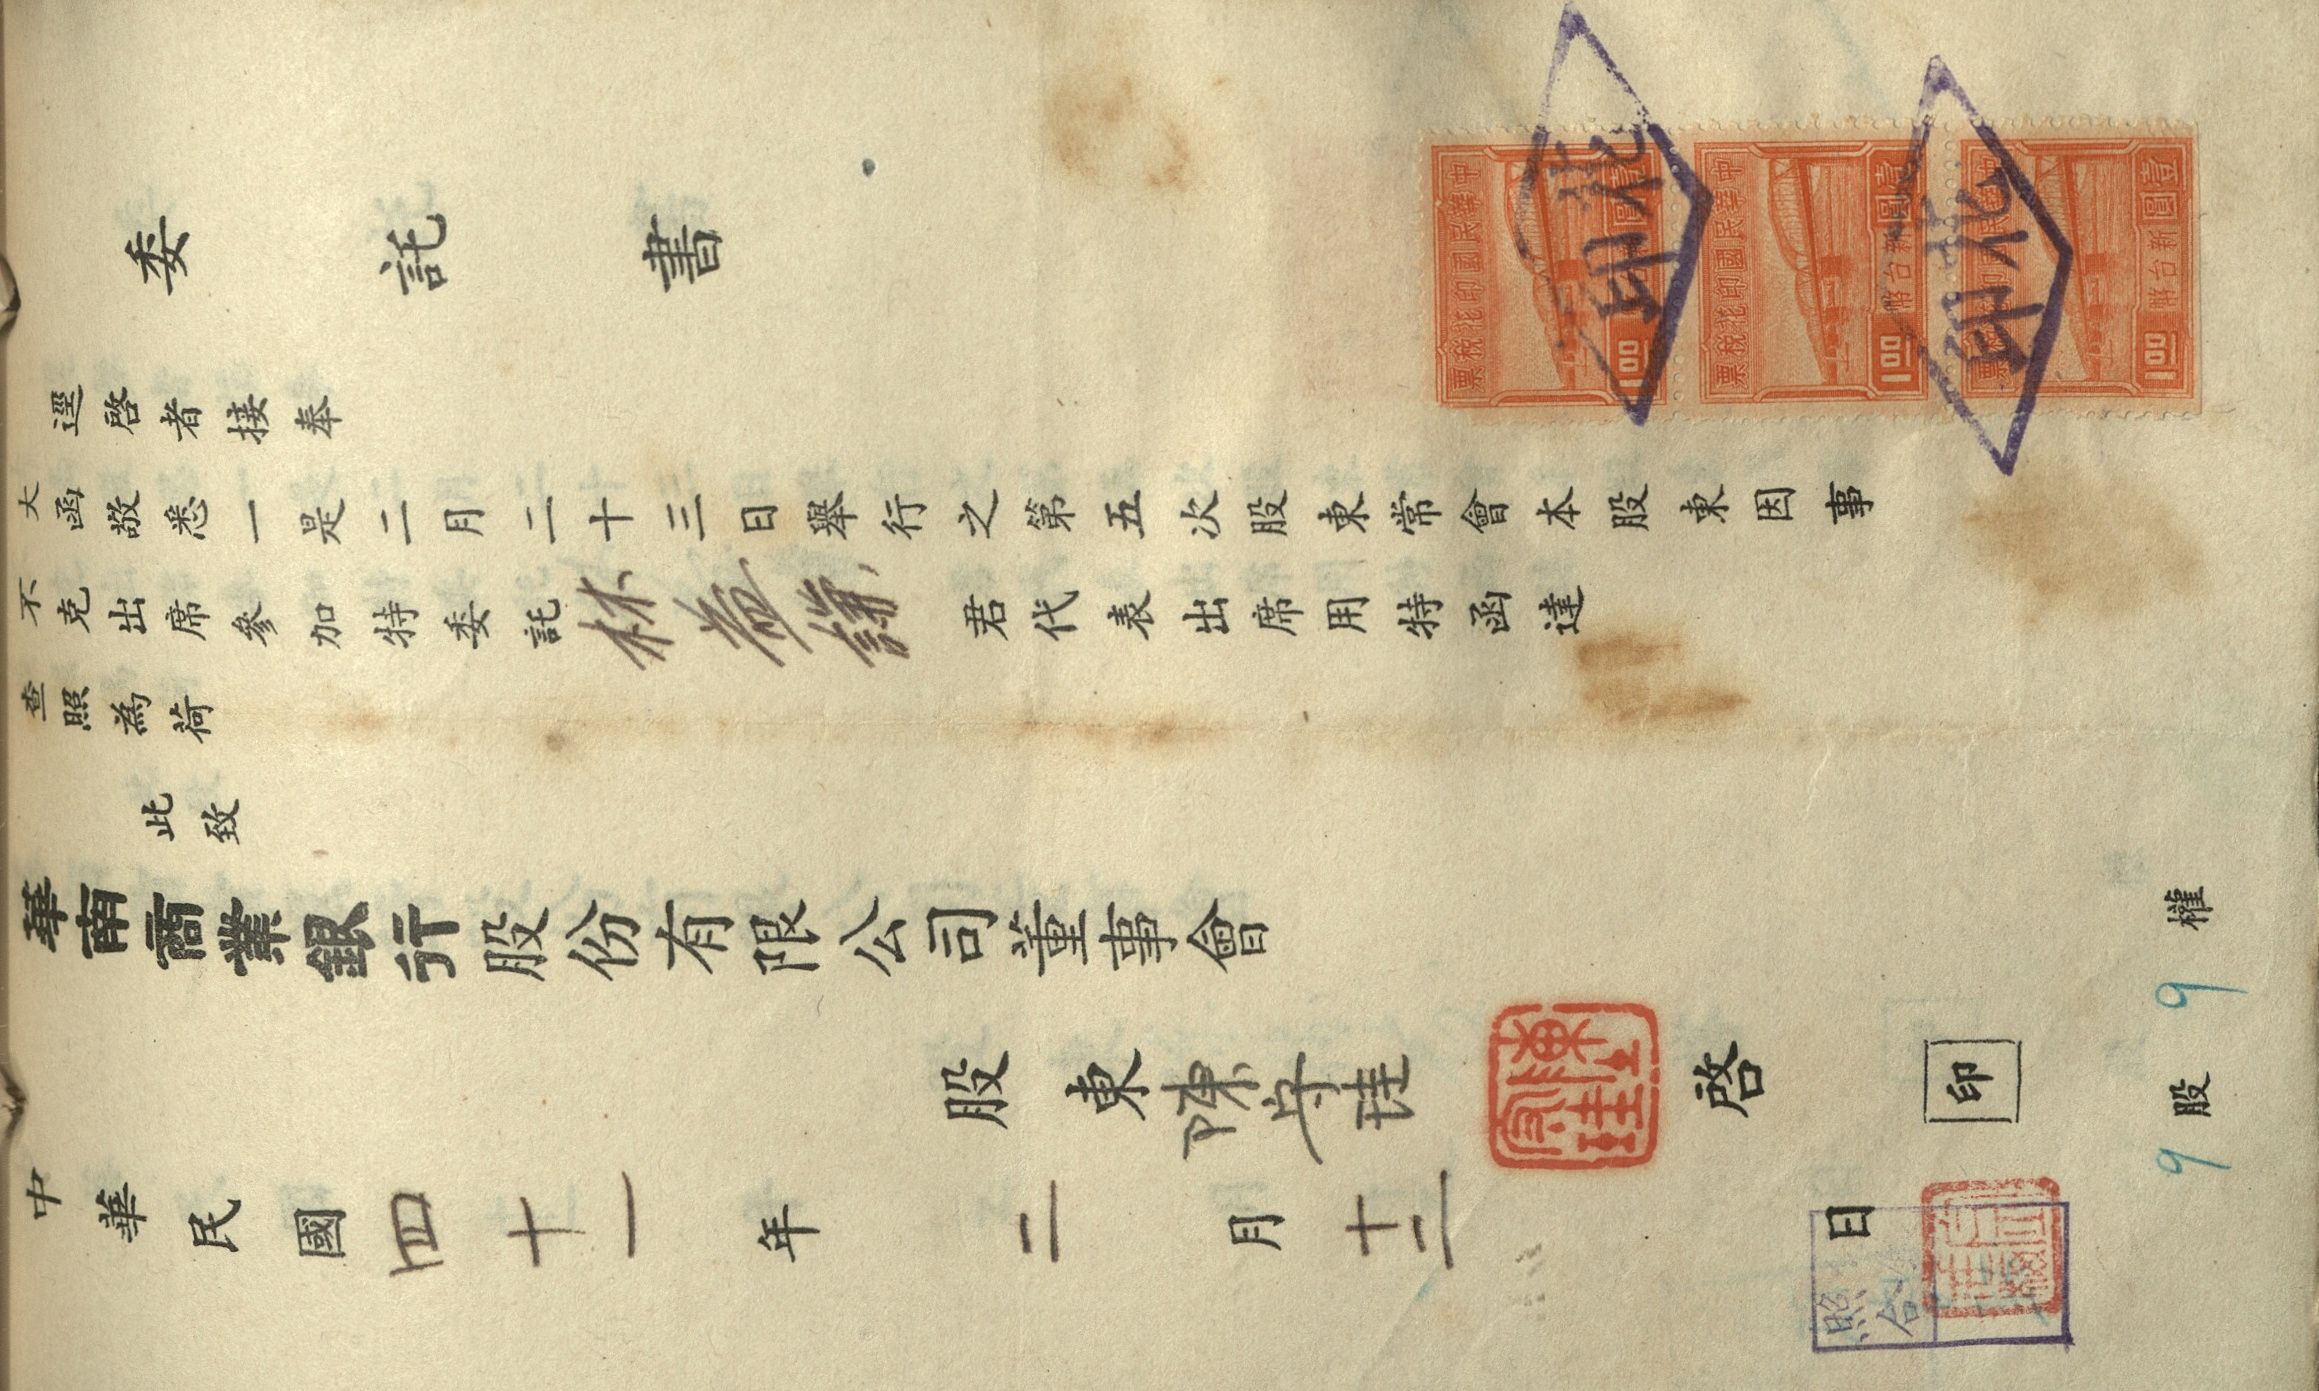 委託書
逕啓者接奉
大函敬悉一是二月二十三日舉行之第五次股東常會本股東因事
不克出席參加特委託林 君代表出席用特函達
查照為荷
此致
華南商業銀行股份有限公司董事會
股東陳守珪 啓 印
中華民國四十一年二月十二日
9股 9權
中華民國印花稅票
壹圓新台幣
1.00
中華民國印花稅票
壹圓新台幣
1.00
壹圓新台幣
1.00
印花
印花
照合